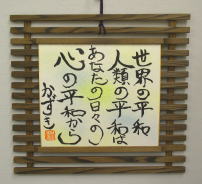 世界の平和
人類の平和は
あなたの日々の
心の平和から
かずを